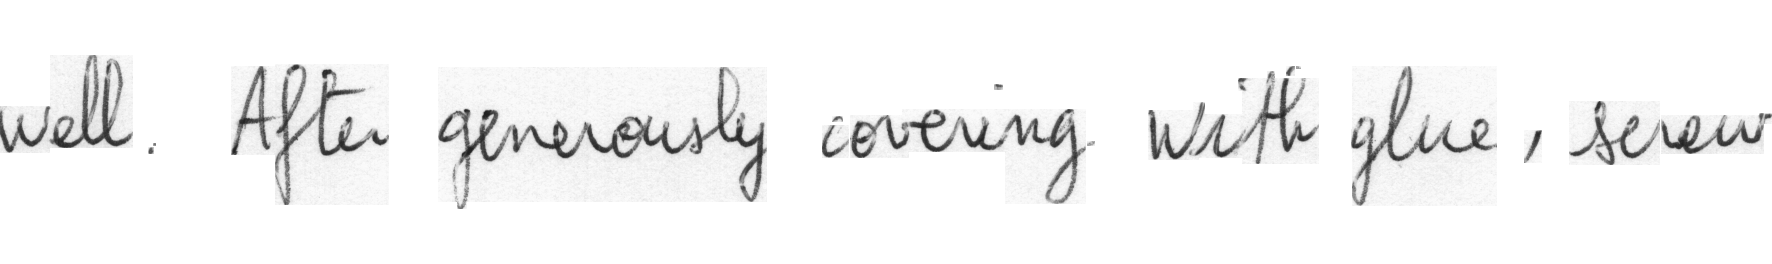 well. After generously covering with glue, screw